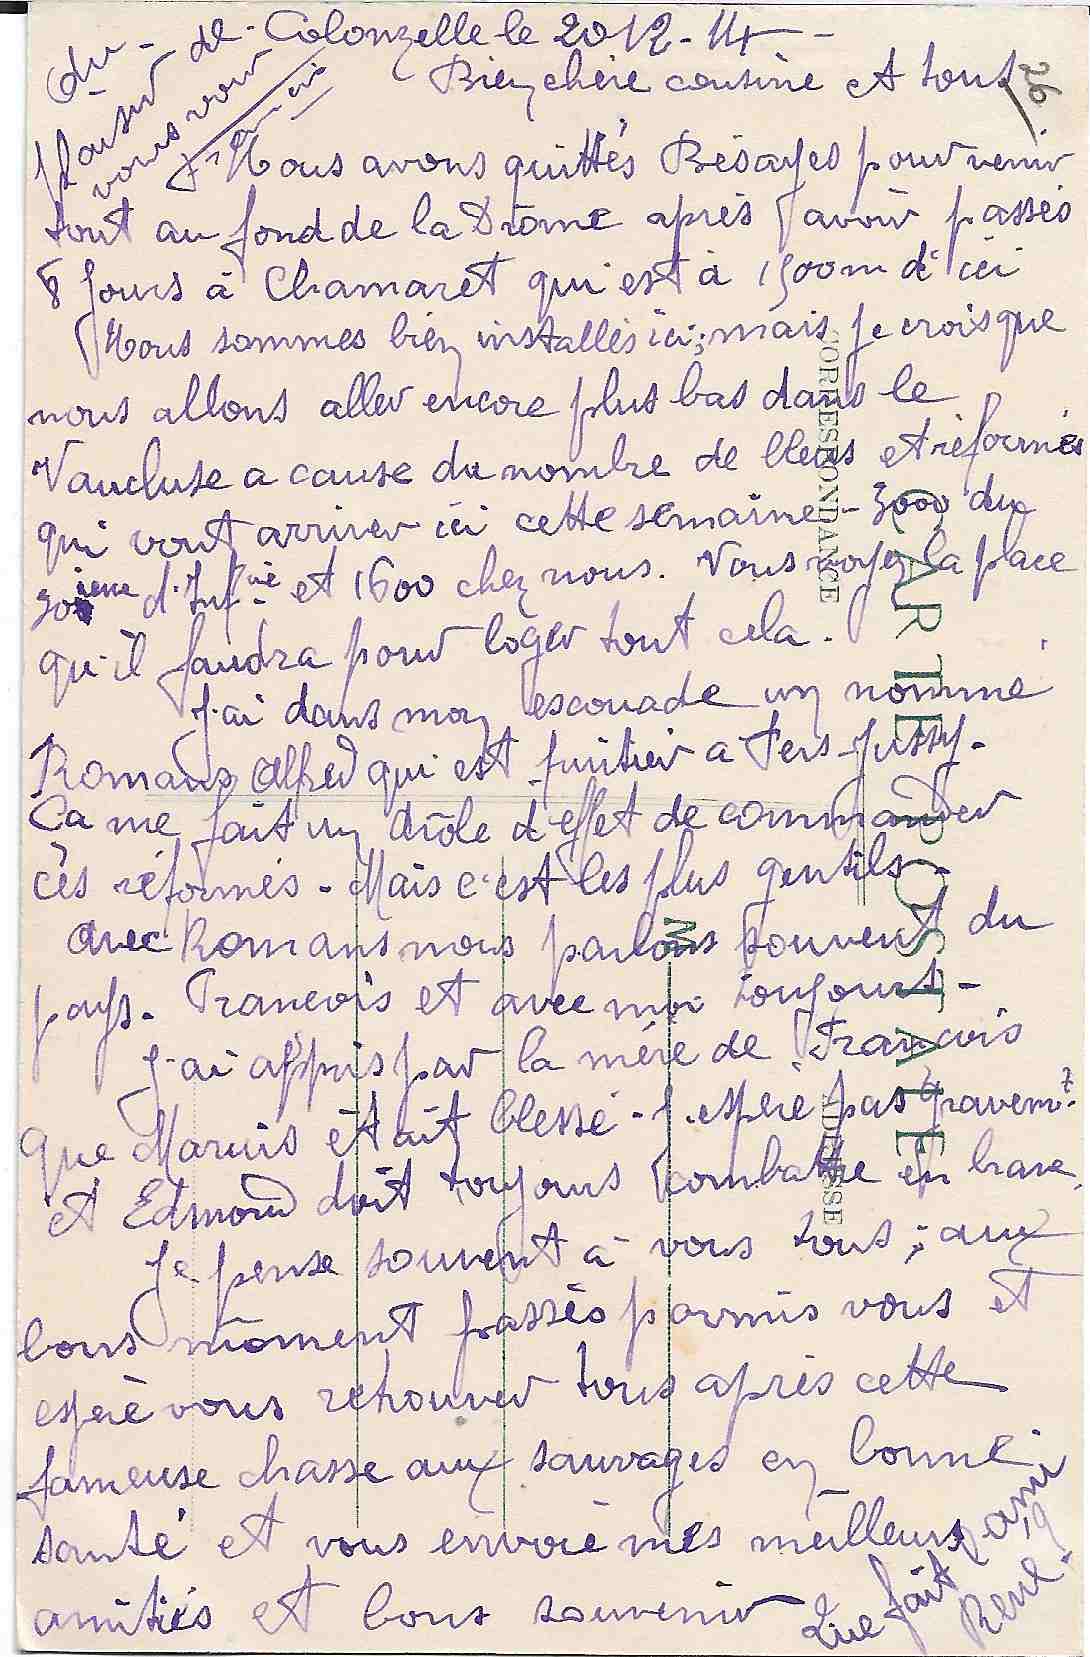 Colonzelle le 20 12 - 14 -
Bien chère cousine et tous
26
Nous avons quittés Bésayes pour venir
tout au fond de la Drôme après avoir passés
8 jours à Chamaret qui est à 1500m d'ici
Nous sommes bien installés ici; mais je crois que
nous allons aller encore plus bas dans le
Vaucluse a cause du nombre de bleus et réformés
qui vont arriver ici cette semaine - 3000 du
30ième d'Inf.rie et 1600 chez nous. Vous voyez la place
qu'il faudra pour loger tout cela.
J'ai dans mon escouade un nommé
Romans Alfred qui est fruitier a Pers-Jussy.
Ça me fait un drôle d'effet de commander
ces réformés - Mais c'est les plus gentils -
avec Romans nous parlons souvent du
pays. Francois et avec moi toujours -
J'ai appris par la mère de Francois
que Marius était blessé - J'espère pas gravemt?
et Edmond doit toujours combattre en brave.
Je pense souvent à vous tous; aux
bons moment passés parmis vous et
espère vous retrouver tous après cette
fameuse chasse aux sauvages en bonne
santé et vous envoie mes meilleurs
amitiés et bons souvenir
Que fait ami
René?
Au - plaisir de
vous voir
Francois
CARTE POSTALE
CORRESPONDANCE
ADRESSE
M